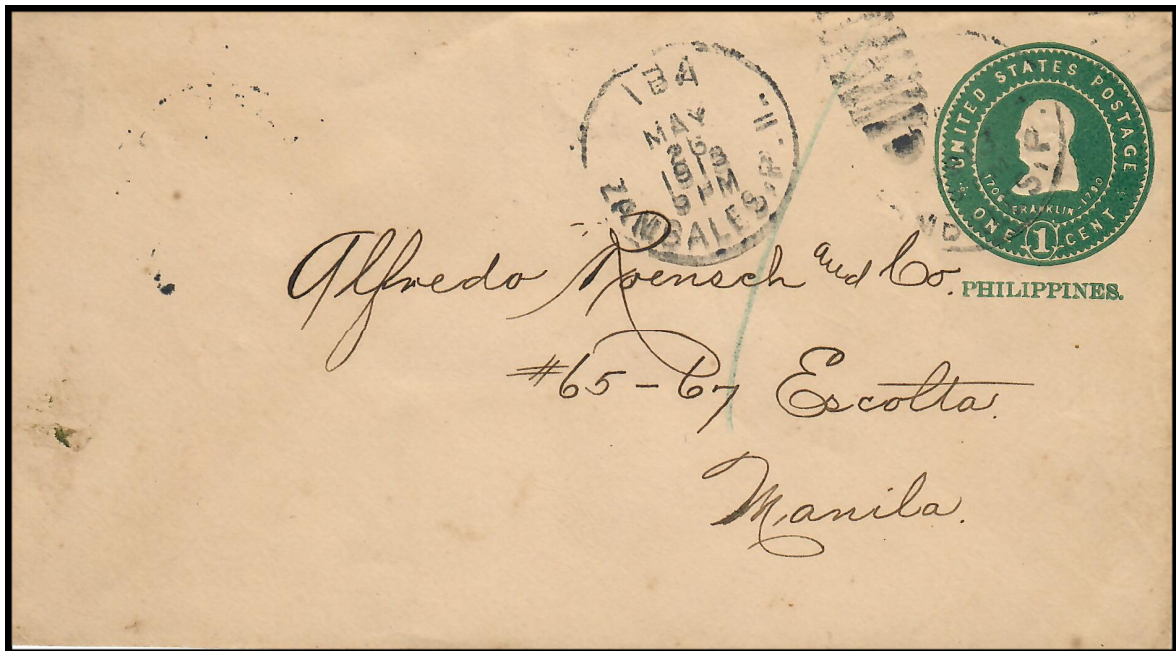 IBA
MAY
26
1913
9 PM
ZAMBALES, P.I.
UNITED STATES POSTAGE
1706 - FRANKLIN - 1790
ONE 1 CENT
PHILIPPINES.
Alfredo Roensch and Co.
#65-67 Escolta.
Manila.